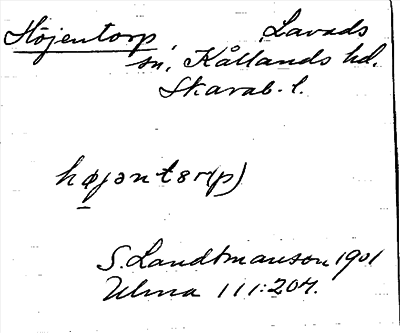 Höjentorp Lavads
sn, Kållands hd.
Skarab. l.
højentorp)
S. Landtmanson 1901
Ulma 111:204.